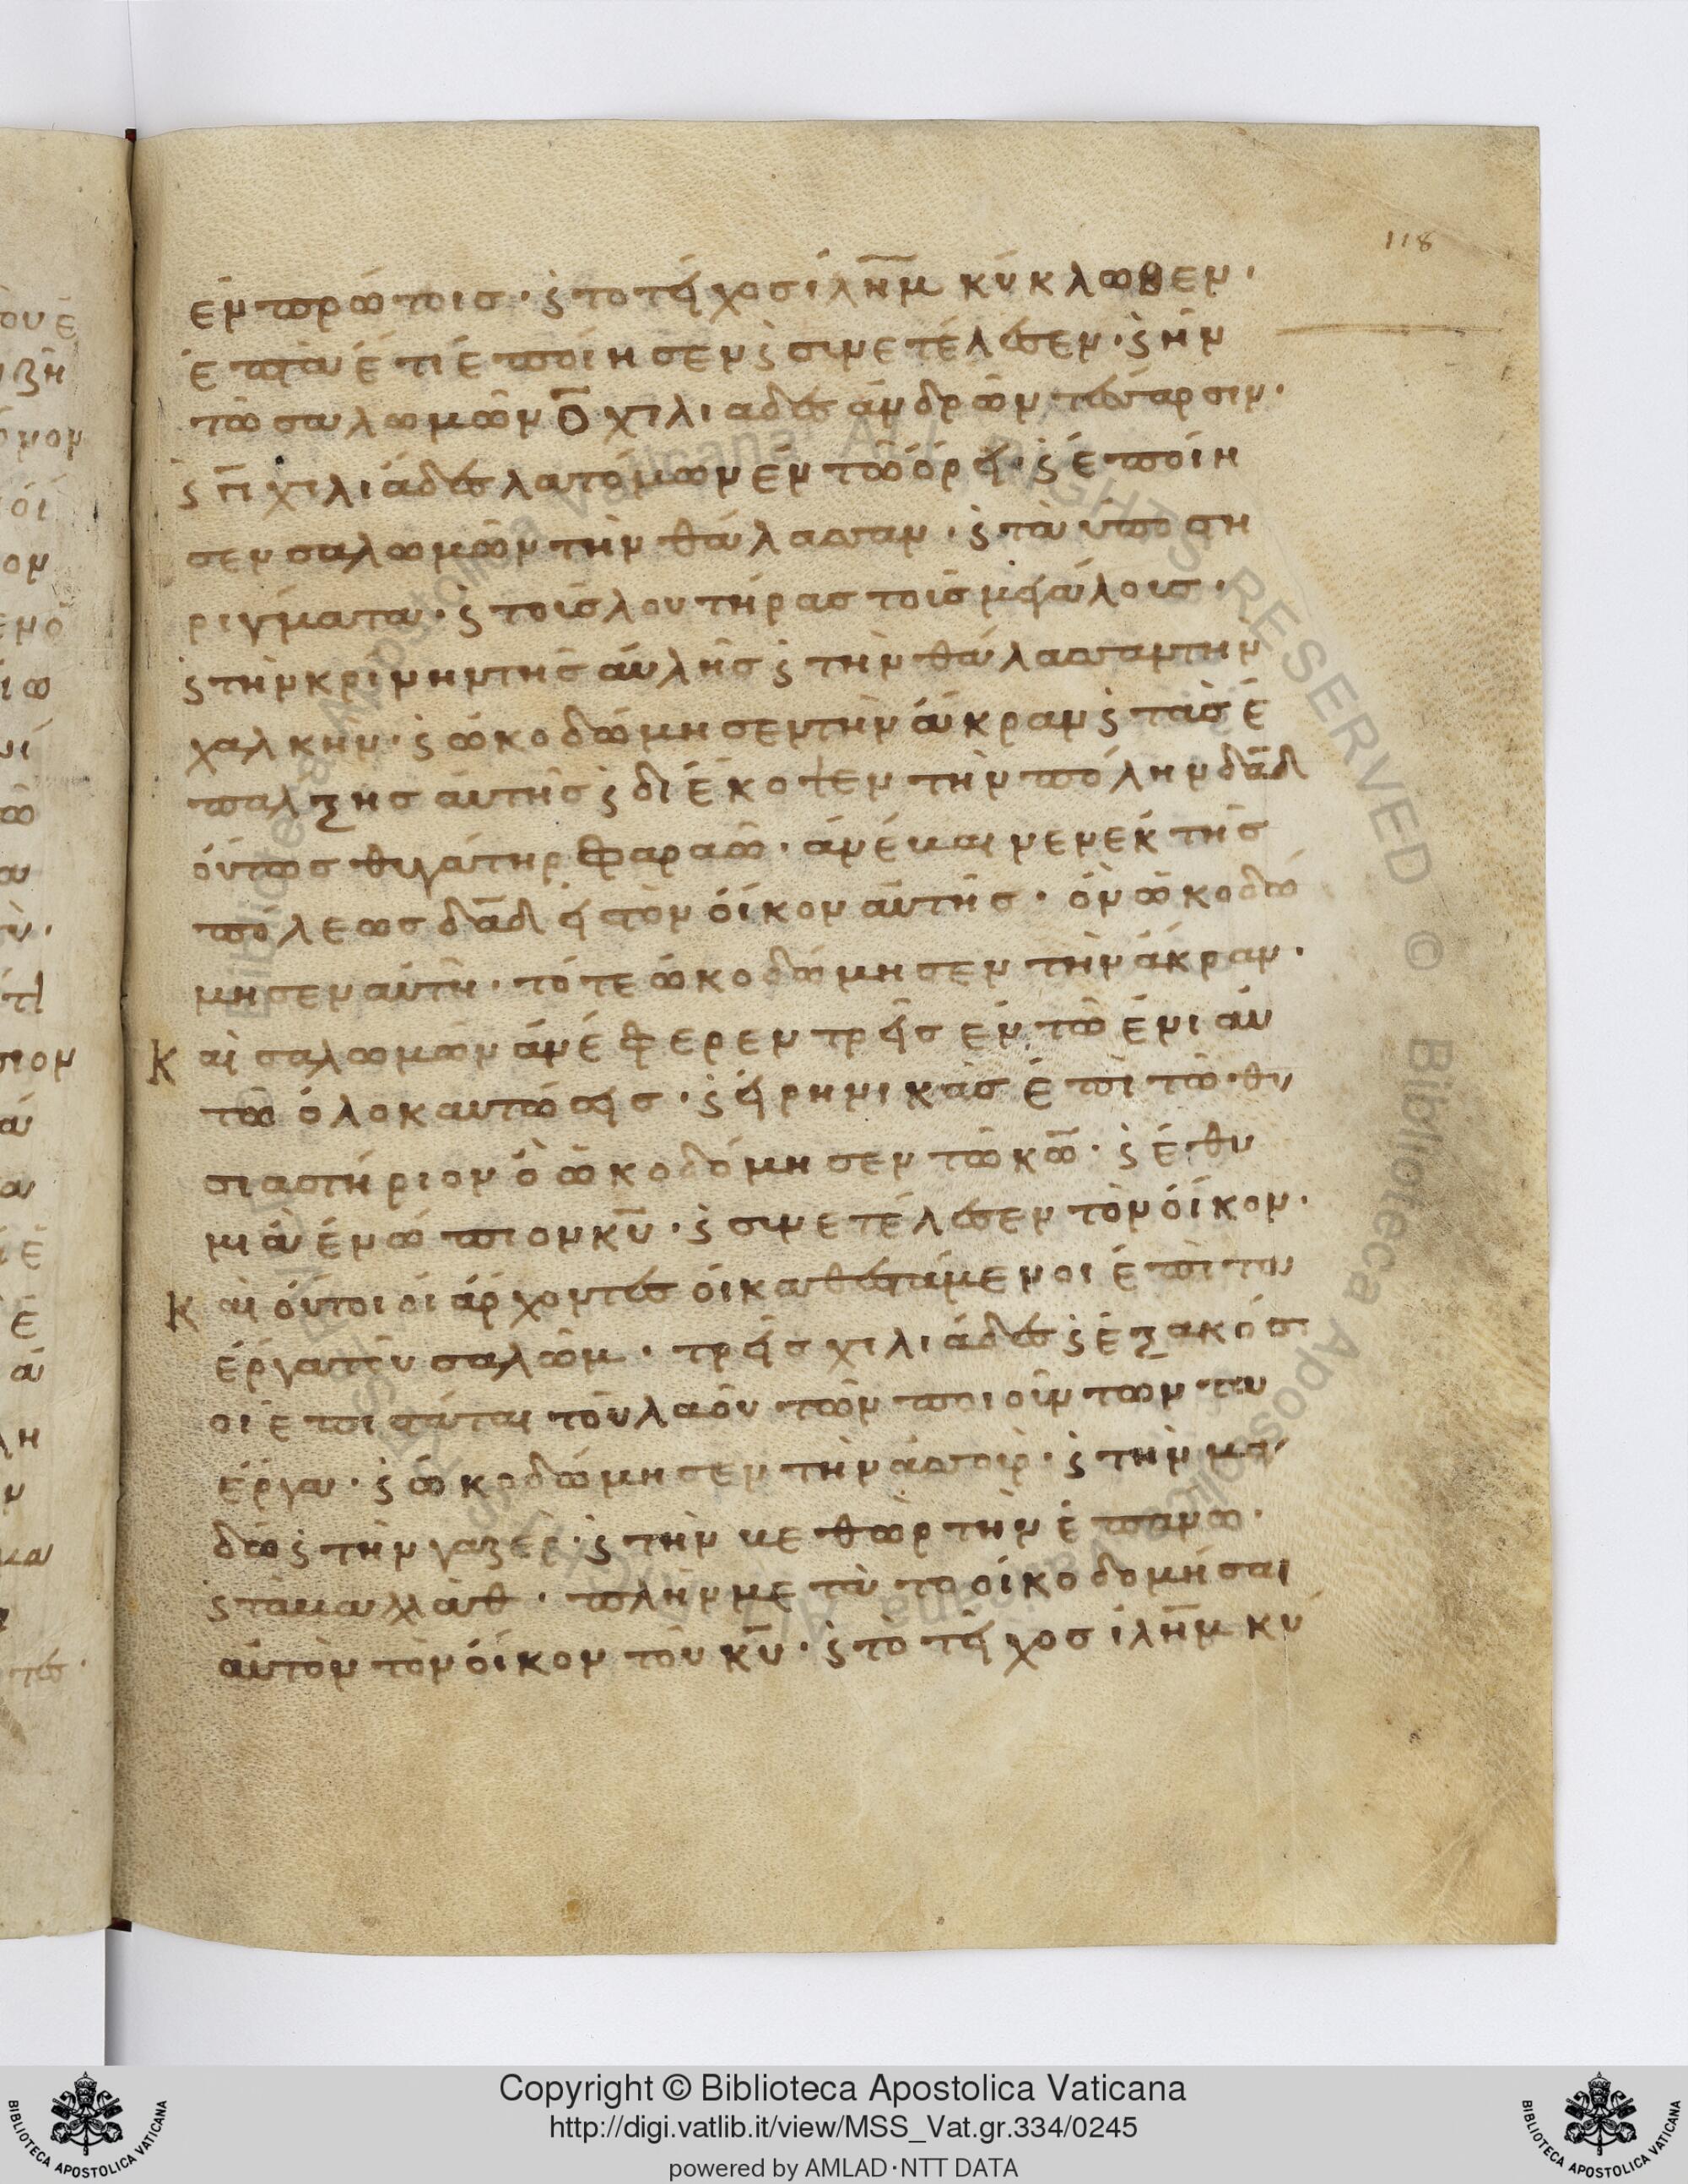 118
ἐν πρώτοισ · ϛ το τεῖχοσ ἰλη̅μ κύκλωθεν ·
ἑπτὰ ἔτι ἐποίησεν ϛ συνετέλεσεν · ϛ ἦν
τῶ σαλωμὼν ο̅ χιλιάδεσ ἀνδρῶν τέσσαρσιν ·
ϛ π̅ χιλιάδεσ λατόμων ἐν τῶ ὄρει · ϛ ἐποίη
σεν σαλωμὼν τὴν θάλασσαν · ϛ τὰ ὑποστη
ρίγματα · ϛ τοὶσ λουτήρασ τοὶσ μεγάλουσ ·
ϛ τὴν κρίνην τῆσ αὐλῆσ ϛ τὴν θάλασσαν τὴν
χαλκὴν · ϛ ὠκοδώμησεν τὴν ἄκραν ϛ τὰσ ἐ
πάλξησ αὐτῆσ ϛ διέκοψεν τὴν πόλην δα̅δ
οὕτωσ θυγάτηρ φαραῶ · ἀνέβαινεν ἐκ τῆσ
πόλεωσ δα̅δ εἰσ τὸν οἶκον αὐτῆσ · ὃν ὠκοδώ
μησεν αὐτῆ · τότε ὠκοδώμησεν τὴν ἄκραν ·
Καὶ σαλωμὼν ἀνέφερεν τρεῖσ ἐν τῶ ἐνιαυ
τῶ ὁλοκαυτώσεισ · ϛ εἰρηνικὰσ ἐπὶ τῶ · θυ
σιαστήριον ὃ ὠκοδόμησεν τῶ κω̅ · ϛ ἐθυ
μία ἐνώπιον κυ̅ · ϛ συνετέλεσεν τὸν οἶκον ·
Καὶ οὗτοι οἱ ἄρχοντεσ οἱ καθεσταμενοι ἐπὶ τῶν
ἔργατῶν σαλῶμ · τρεῖσ χιλιάδεσ ϛ ἑξακόσι
οι ἐπιστάται τοῦ λαοῦ τῶν ποιούντων τὰ
ἔργα · ϛ ὠκοδώμησεν τὴν ἀσσοὶρ · ϛ τὴν μα
δὼ ϛ τὴν γαζὲρ · ϛ τὴν βεθὼρ τὴν ἐπάνω ·
ϛ τὰ βαλλὰθ · πλὴν μετὰ το οἰκοδομῆσαι
αὐτὸν τὸν οἶκον τοῦ κυ̅ · ϛ τὸ τεῖχοσ ἰλη̅μ κύ
Copyright © Biblioteca Apostolica Vaticana
http://digi.vatlib.it/view/MSS_Vat.gr.334/0245
powered by AMLAD·NTT DATA